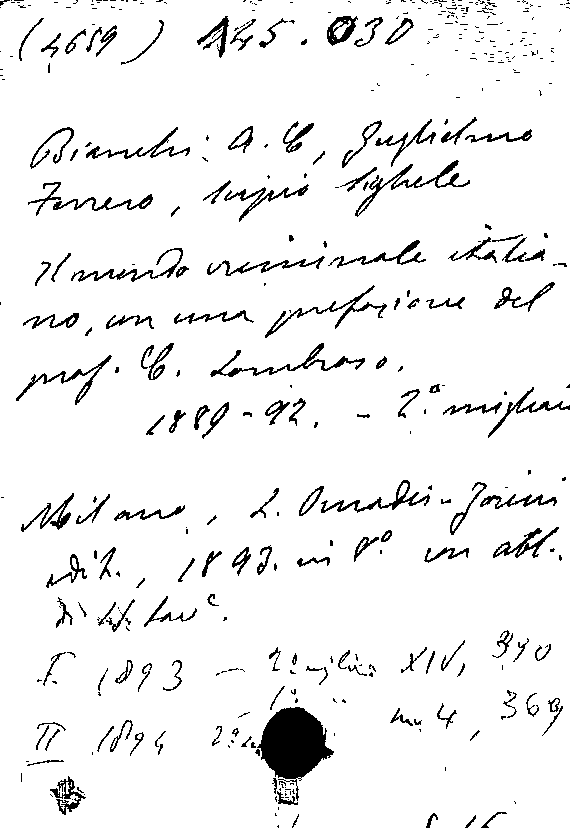 (4689) 145.030
Bianchi A. C., Guglielmo
Ferrero, Scipio Sighele
Il mondo criminale italia-
no, con una prefazione del
prof. C. Lombroso.
1889-92. - 2° migliaio
Milano, L. Omodei-Zorini
edit., 1893. in 8° con atl.
di tav.
I. 1893 - 2° migliaio XIV, 390
1° "
II 1894 2° 4, 369